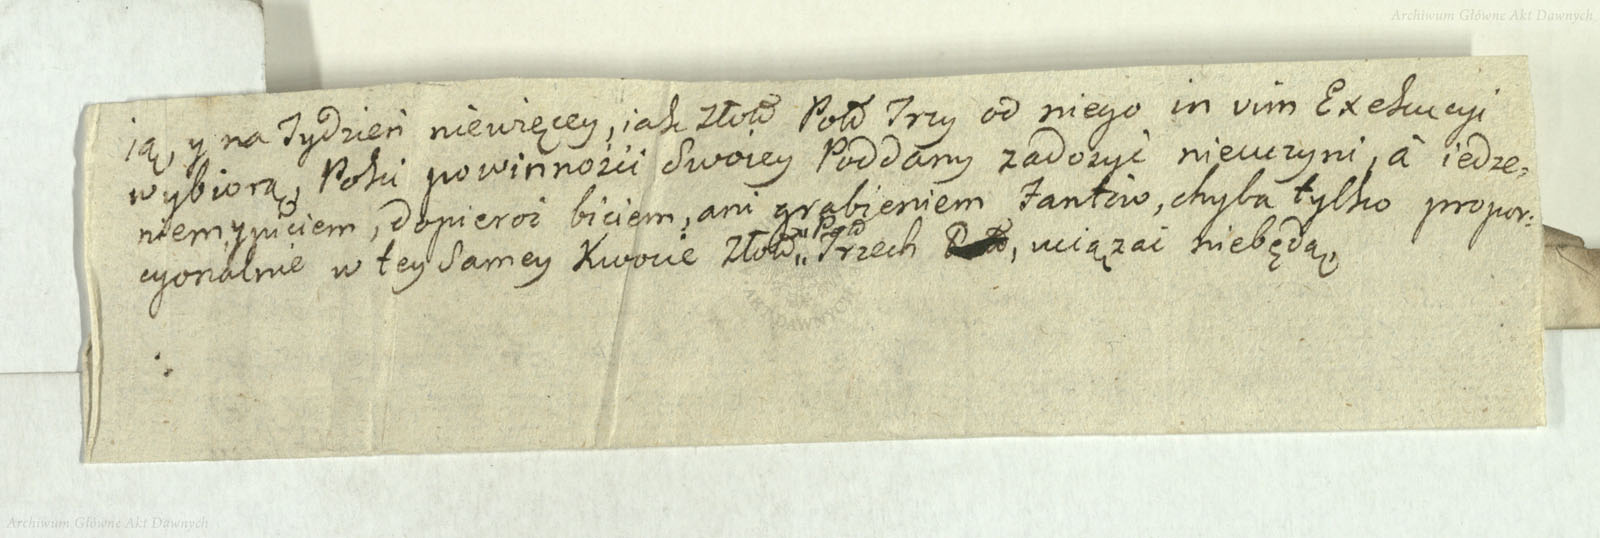 Archiwum Główne Akt Dawnych
ią, y na Tydzień niewięcey, iak Złotͫ Polͫ Trzy od niego in vim Exekucyi
wybiorą, Poki powinności Swoiey Poddany zadosyć nieuczyni, à iedze-
niem, y piciem, dopieroż biciem, ani grabieniem Fantów, chyba tylko propor-
cyonalnie w tey Samey Kwocie Złotͫ „ Trzech Polͫ, uciązać niebędą,
AKT DAWNYCH
Archiwum Główne Akt Dawnych